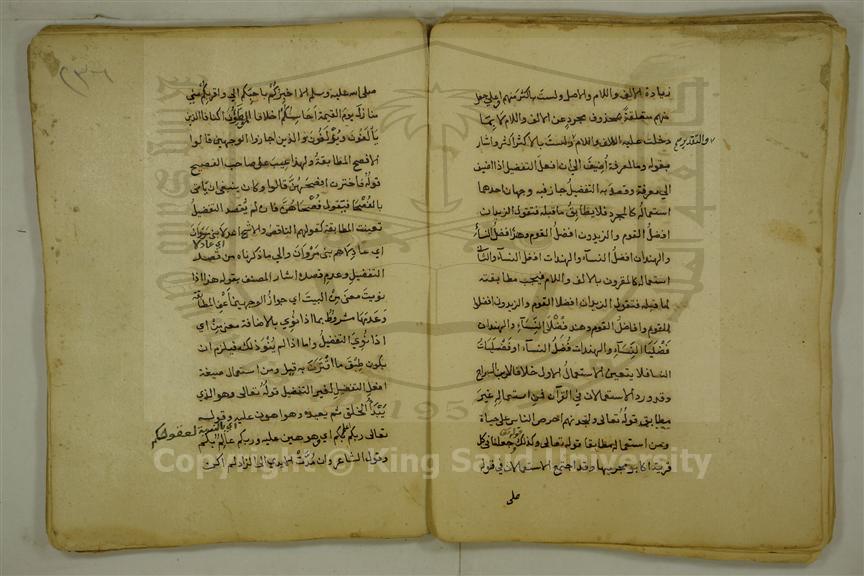 زيادة الالف واللام والاصل ولست باكثر منهم او على جعل
منهم متعلقة بمحذوف مجرد عن الالف واللام لا بما
دخلت عليه الالف واللام ولست بالاكثر اكثر واشار
والتقدير
بقوله وما لمعرفة اضيف الى ان افعل التفضيل اذا اضيف
الى معرفة وقصد به التفضيل جاز فيه وجهان احدهما
استعماله كالمجرد فلا يطابق ما قبله فتقول الزيدان
افضل القوم والزيدون افضل القوم وهند افضل النسا
والهندان افضل النساء والهندات افضل النساء والثاني
استعماله كالمقرون بالالف واللام فيجب مطابقته
لما قبله فتقول الزيدان افضلا القوم والزيدون افضلو
القوم وافاضل القوم وهند فضلى النساء والهندان
فضليا النساء والهندات فضل النساء او فضليات
النسا فلا يتعين الاستعمال الاول خلافا لابن السراج
وقد ورد الاستعمالان في القرآن فمن استعماله غير
مطابق قوله تعالى ولتجدنهم احرص الناس على حياة
ومن استعماله مطابقا قوله تعالى وكذلك جعلنا في كل
قرية اكابر مجرميها وقد اجتمع الاستعمالان في قوله
صلى
صلى الله عليه وسلم الا اخبركم باحبكم الي واقربكم مني
منازل يوم القيمة احاسنكم اخلاقا الموطؤن اكنافا الذين
يألفون ويؤلفون والذين اجازوا الوجهين قالوا
الافصح المطابقة ولهذا عيب على صاحب الفصيح
قوله فاخترت افصحهن قالوا وكان ينبغي ان ياتى
بالفصحا فيقول فصحاهن فان لم يقصد التفضيل
تعينت المطابقة كقولهم الناقص والاشج اعدلا بنى مروان
اي عادلا
اي عادلاهم بنى مروان والى ما ذكرناه من قصد
التفضيل وعدم قصده اشار المصنف بقوله هذا اذا
نويت معنى من البيت اي جواز الوجهين اعنى المطابقة
وعدمها مشروط بما اذا نوى بالاضافة معنى من اي
اذا نوى التفضيل واما اذا لم ينو ذلك فيلزم ان
يكون طبق ما اقترن به قيل ومن استعمال صيغة
افعل التفضيل لغير التفضيل قوله تعالى وهو الذي
يبدأ الخلق ثم يعيده وهو اهون عليه وقوله
تعالى ربكم اعلم بكم اي وهو هين عليه وربكم عالم بكم
وقول الشاعر وان مدت الايدي الى الزاد لم اكن
Copyright © King Saud University
1957